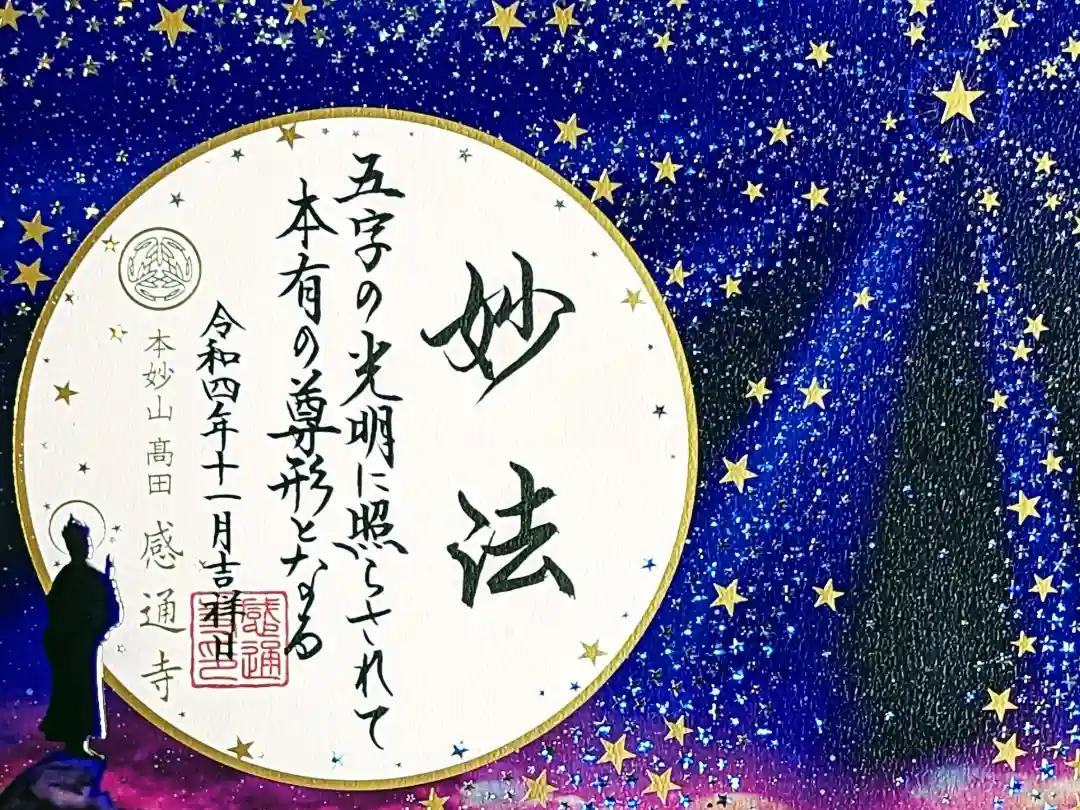 妙法
五字の光明に照らされて
本有の尊形となる
令和四年十一月吉祥日
本妙山髙田感通寺